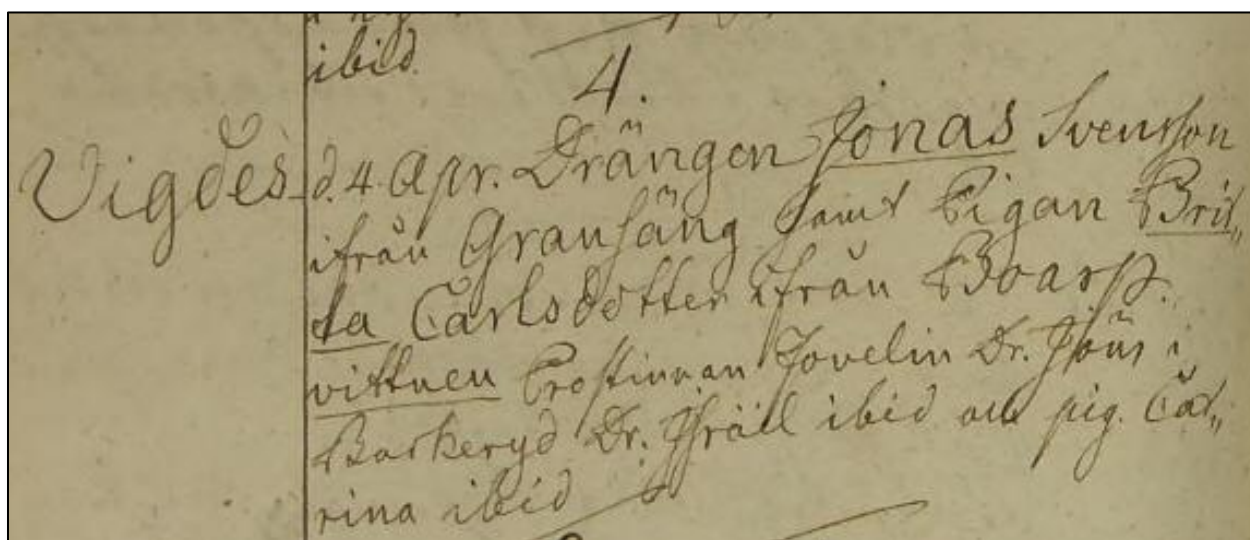 ibid.
4.
Vigdes d. 4. Apr. Drängen Jonas Svensson
ifrån Granhäng samt Pigan Brit„
ta Carlsdotter ifrån Boarp.
vittnen Prostinnan Jovelin Dr. Jöns i
Barkeryd Dr. Isräel ibid och pig. Cat„
rina ibid